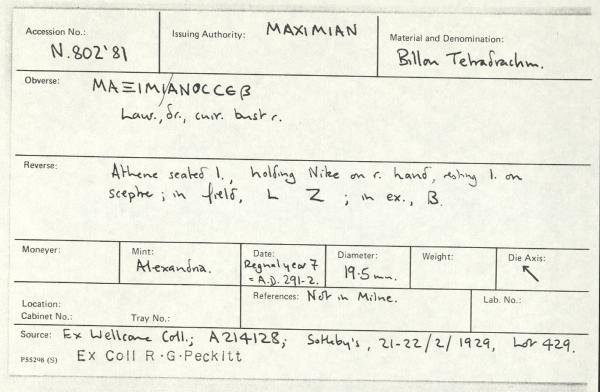 Accession No.: N.802'81
Issuing Authority: MAXIMIAN
Material and Denomination: Billon Tetradrachm.
Obverse: ΜΑΞΙΜ/ΙΑΝΟCCΕΒ
Laur., dr., cuir. bust r.
Reverse: Athene seated l., holding Nike on r. hand, resting l. on
sceptre; in field, L Z ; in ex., B.
Moneyer:
Mint: Alexandria.
Date: Regnal year 7
= A.D. 291-2.
Diameter: 19.5 mm.
Weight:
Die Axis: ↖
Location:
Cabinet No.: Tray No.:
References: Not in Milne.
Lab. No.:
Source: Ex Wellcome Coll.; A214128; Sotheby's, 21-22/2/1929, Lot 429.
P55298 (S) Ex Coll R.G.Peckitt